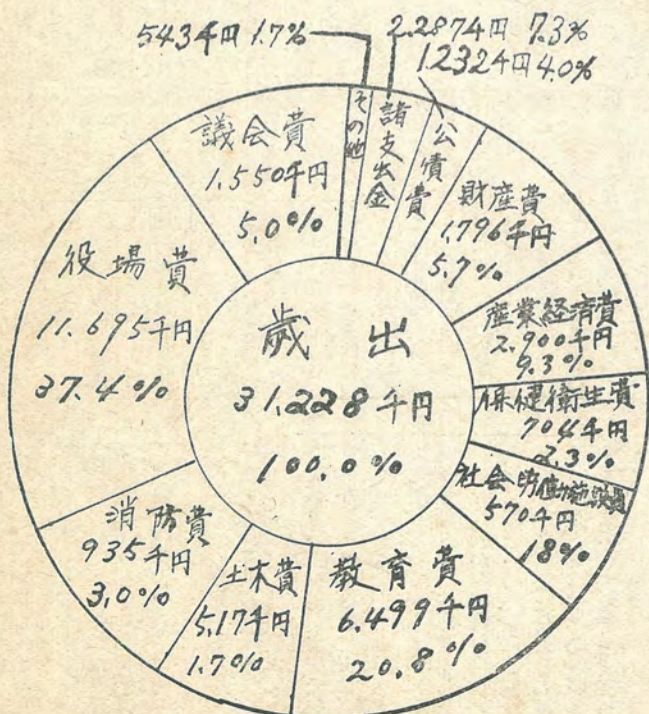 543千円 1.7%
2.287千円 7.3%
1.232千円 4.0%
その他
諸支出金
公債費
財産費
1,796千円
5.7%
産業経済費
2.900千円
9.3%
保健衛生費
704千円
2.3%
社会労働施設費
570千円
18%
教育費
6.499千円
20.8%
土木費
5.17千円
1.7%
消防費
935千円
3.0%
役場費
11.695千円
37.4%
議会費
1.550千円
5.0%
歳出
31.228千円
100.0%